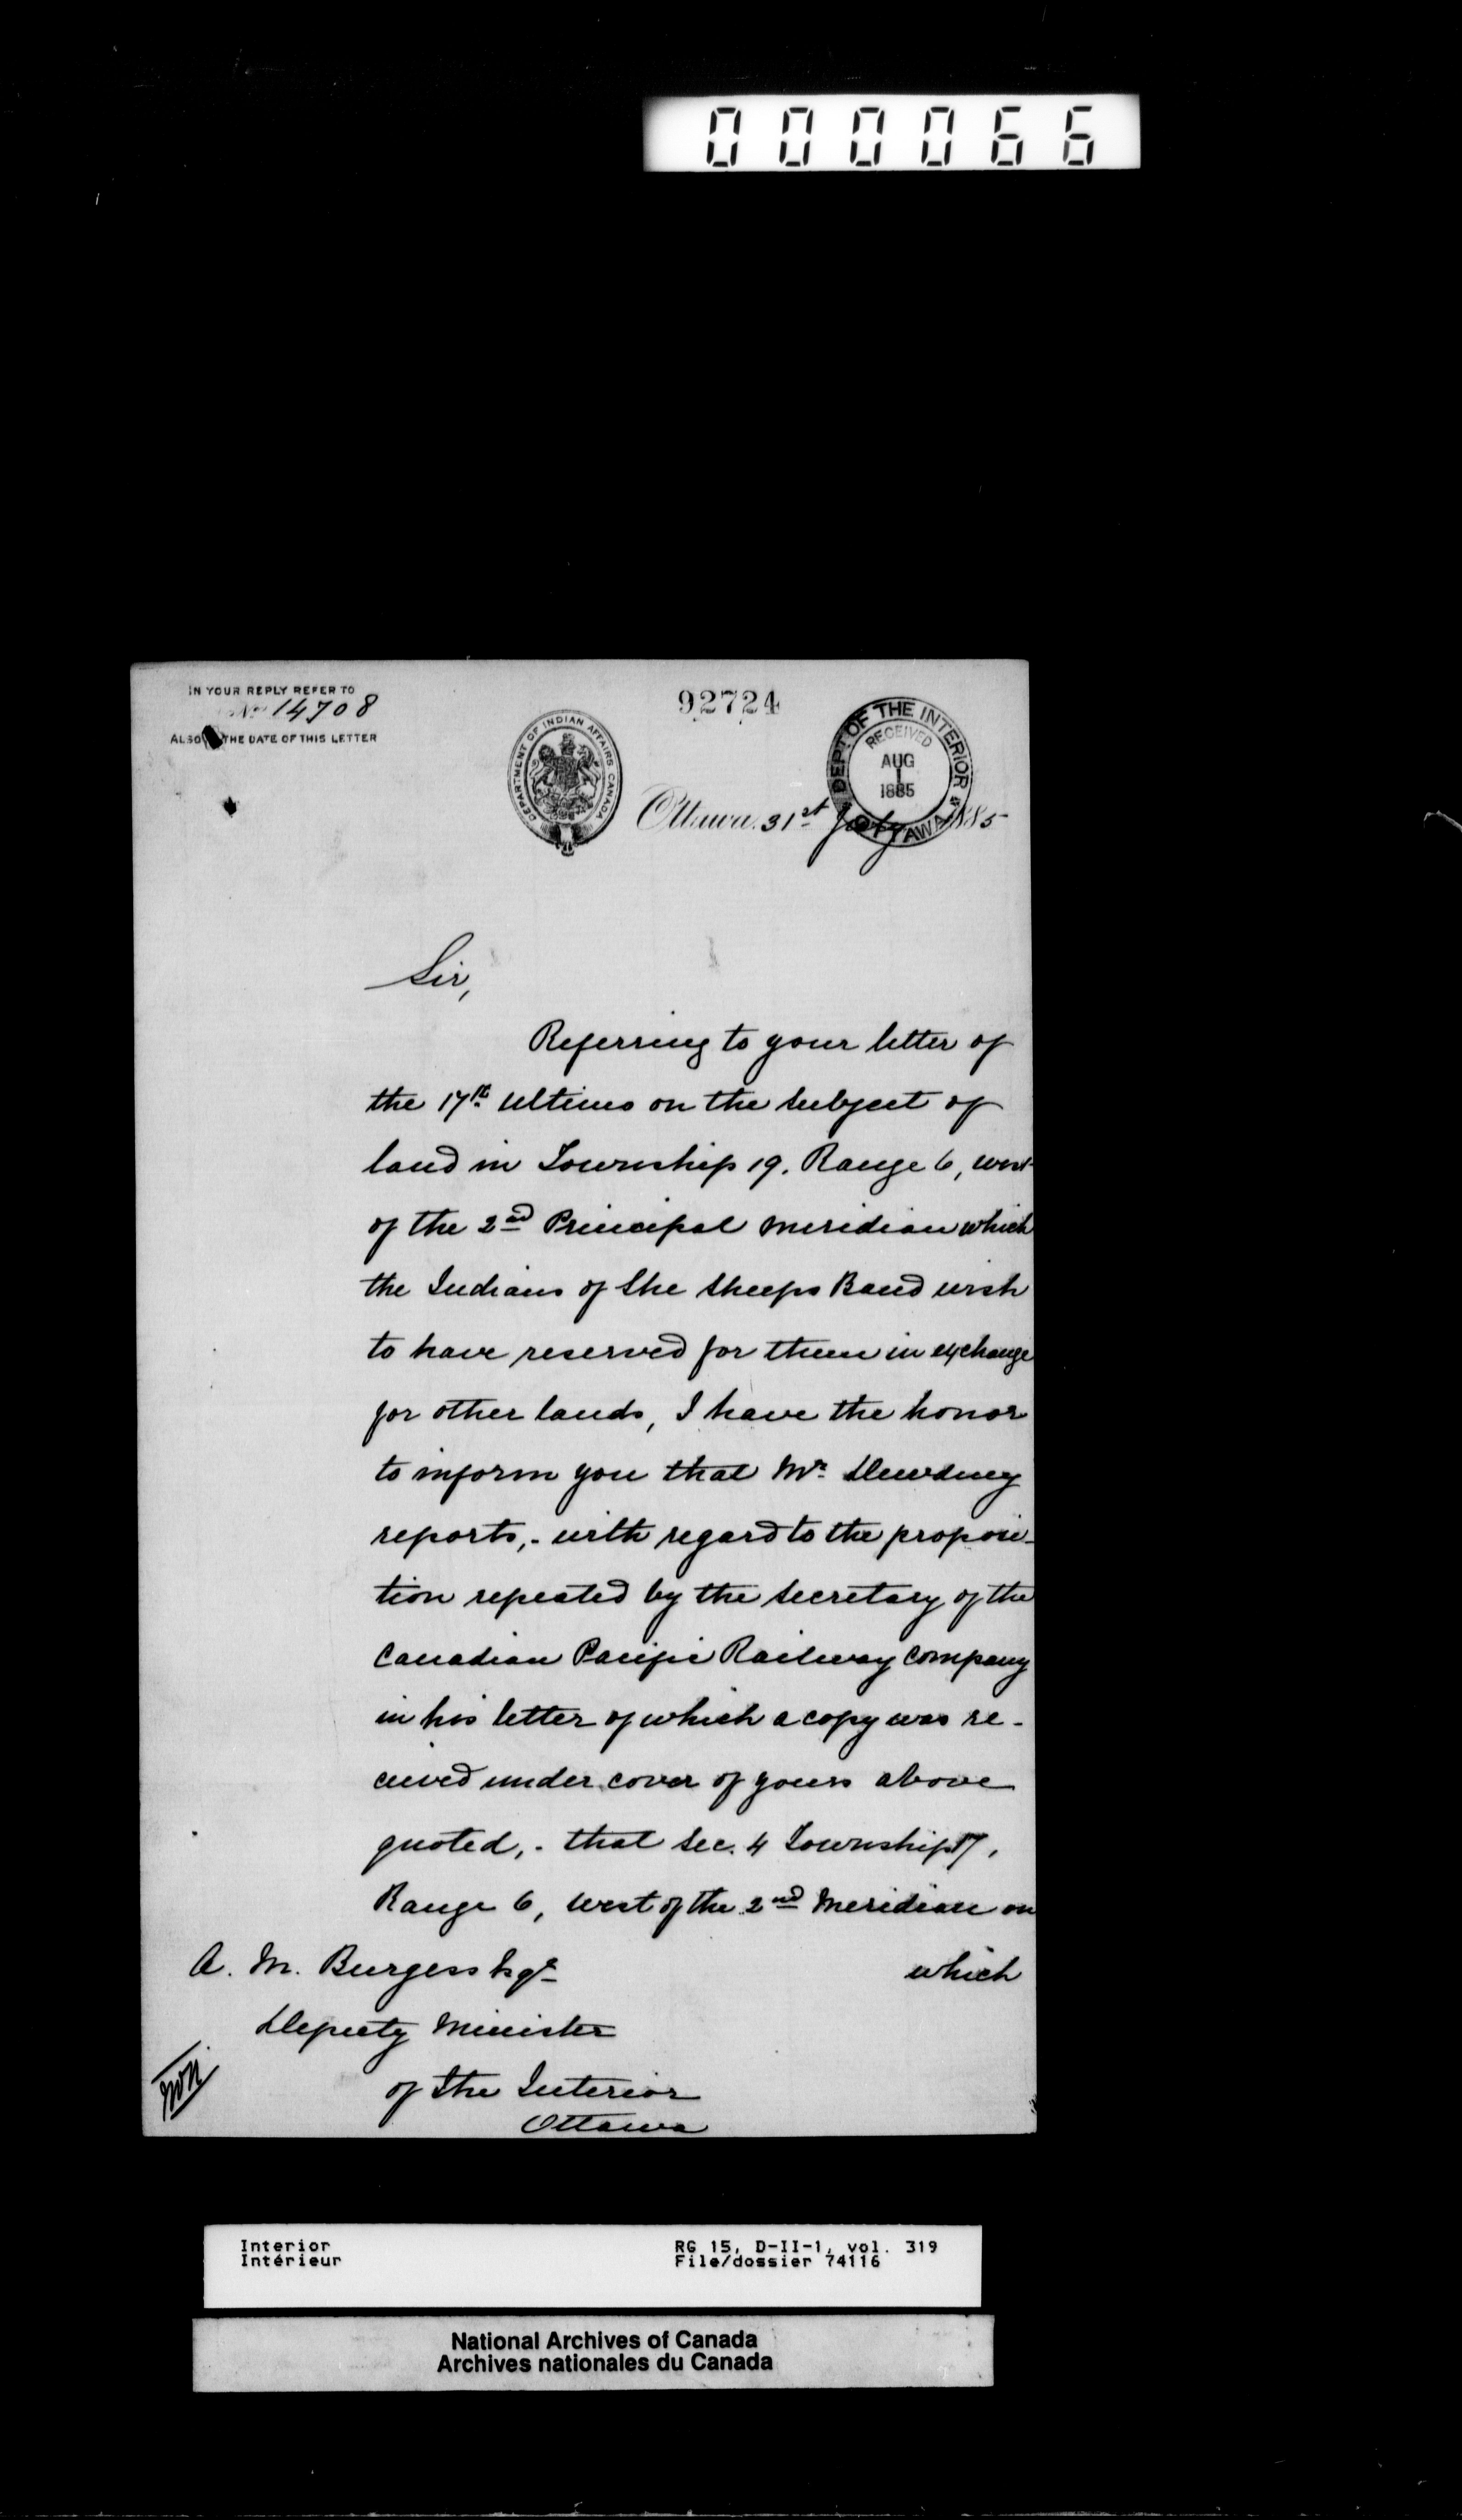 000066
IN YOUR REPLY REFER TO
No 14708
ALSO THE DATE OF THIS LETTER
92724
DEPARTMENT OF INDIAN AFFAIRS CANADA
DEPT OF THE INTERIOR
RECEIVED
AUG
1
1885
OTTAWA
Ottawa 31st July 1885
Sir,
Referring to your letter of
the 17th ultimo on the subject of
land in Township 19. Range 6, west
of the 2nd Principal Meridian which
the Indians of the Sheeps Band wish
to have reserved for them in exchange
for other lands, I have the honor
to inform you that Mr Dewdney
reports,- with regard to the proposi-
tion repeated by the Secretary of the
Canadian Pacific Railway Company
in his letter of which a copy was re-
ceived under cover of yours above
quoted,- that Sec. 4 Township 17,
Range 6, West of the 2nd Meridian on
which
A. M. Burgess Esqr
Deputy Minister
of the Interior
Ottawa
Interior
Intérieur
RG 15, D-II-1, vol. 319
File/dossier 74116
National Archives of Canada
Archives nationales du Canada